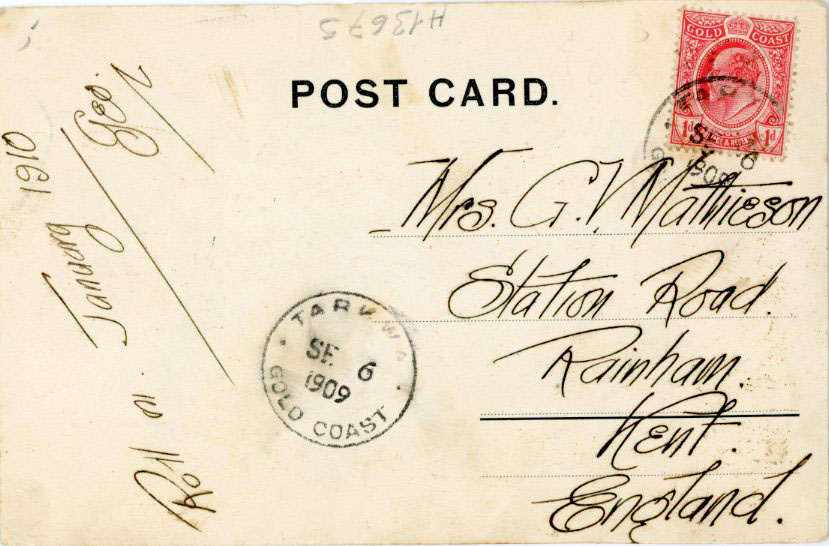 H13675
POST CARD.
GOLD COAST
1d POSTAGE & REVENUE 1d
SE 6
1909
Mrs. G. V. Mathieson
Station Road.
Rainham.
Kent.
England.
TARKWA
SE 6
1909
GOLD COAST
Roll on January 1910
Geo.